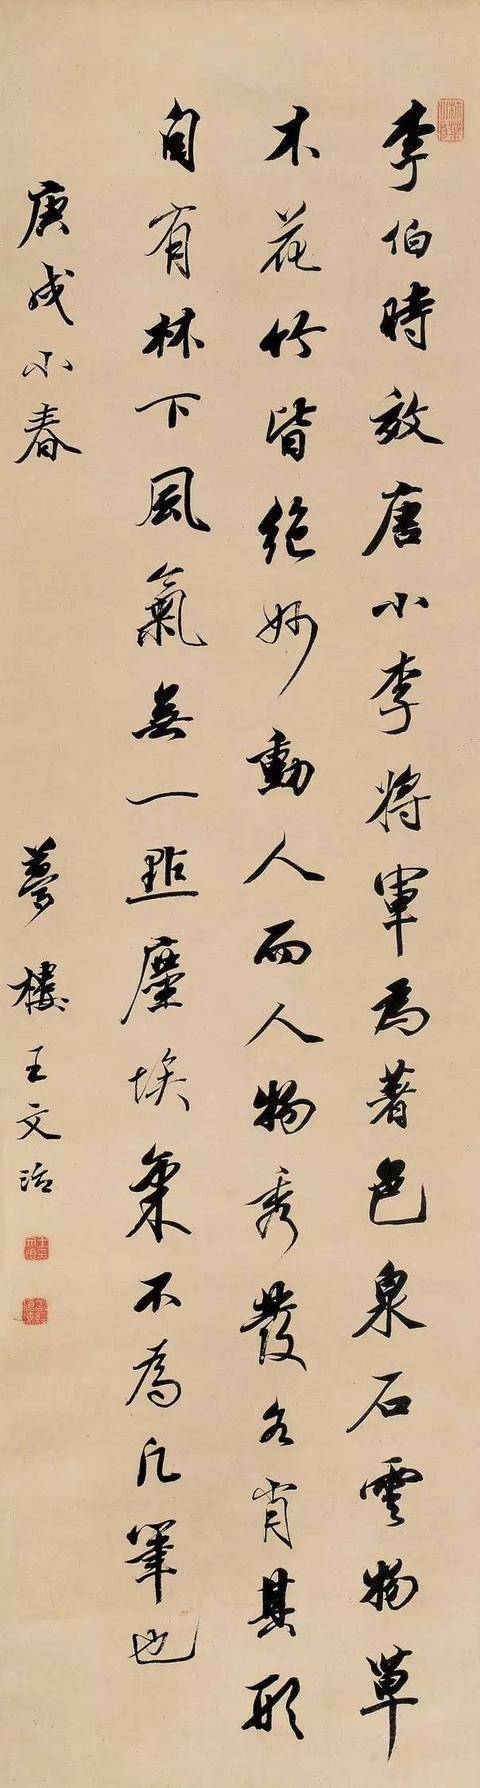 李伯時效唐小李將軍為著色泉石雲物草
木花竹皆絶妙動人而人物秀發各肖其形
自有林下風氣無一點塵埃氣不為凡筆也
庚戌小春
夢樓王文治